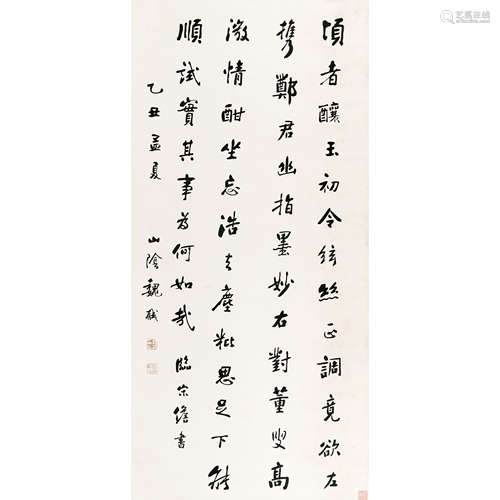 頃者釀玉初令絃絲正調竟欲左
攜鄭君幽指墨妙右對董叟高
激情酣坐忘浩矣塵粃思足下能
順試實其事為何如哉 臨宋儋書
乙丑孟夏 山陰魏戫